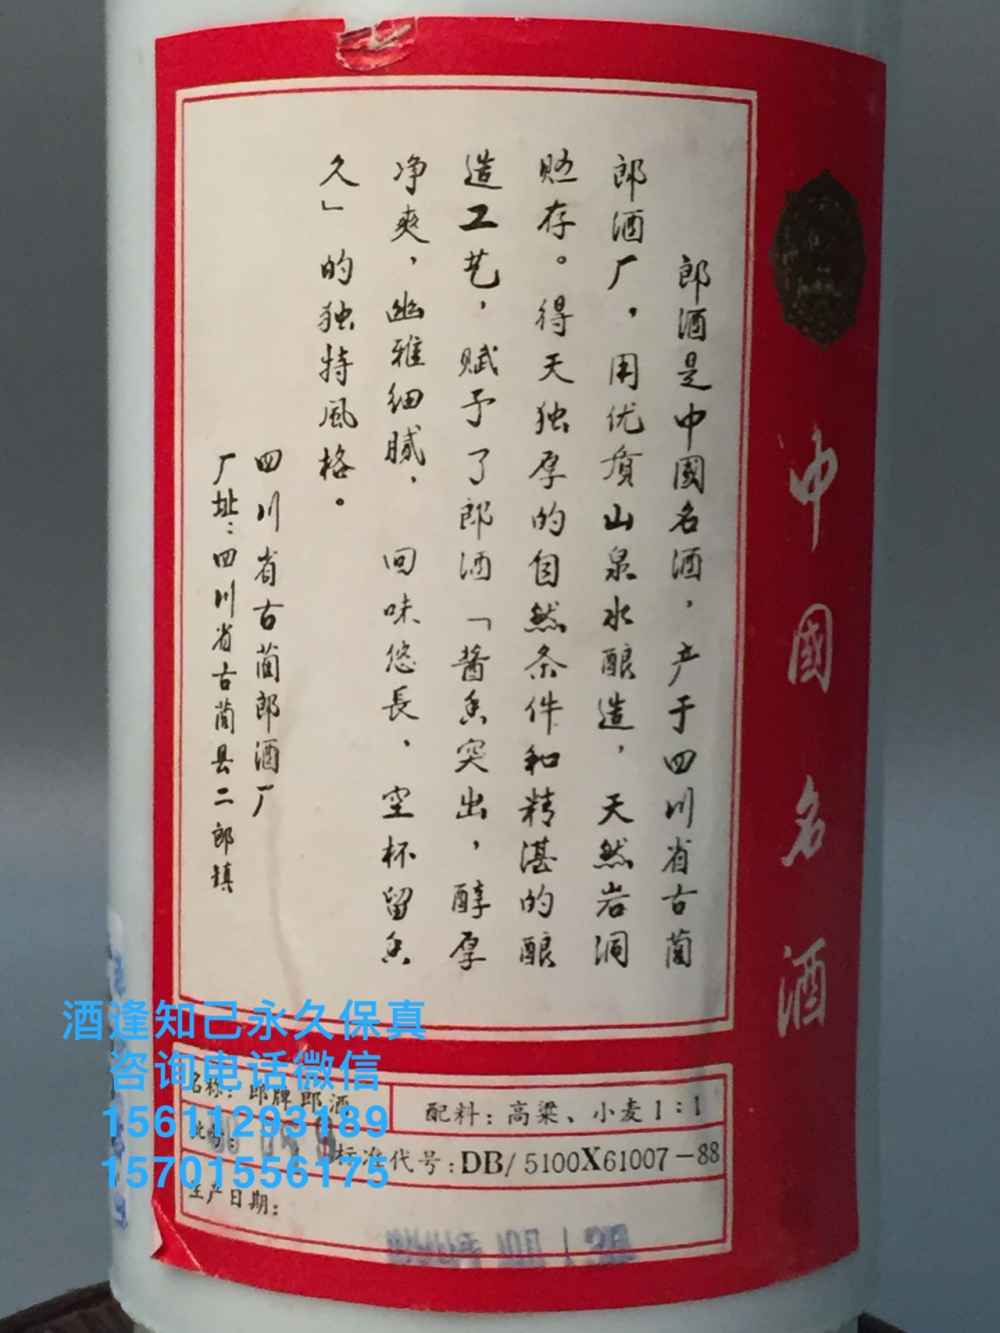 中國名酒
郎酒是中國名酒，产于四川省古蔺
郎酒厂，用优质山泉水酿造，天然岩洞
贮存。得天独厚的自然条件和精湛的酿
造工艺，赋予了郎酒「酱香突出，醇厚
净爽，幽雅细腻，回味悠長，空杯留香
久」的独特風格。
四川省古蔺郎酒厂
厂址：四川省古蔺县二郎镇
酒逢知己永久保真
咨询电话微信
15611293189
15701556175
名称：郎牌郎酒
配料：高粱、小麦1：1
标准代号：DB/5100X61007-88
生产日期：